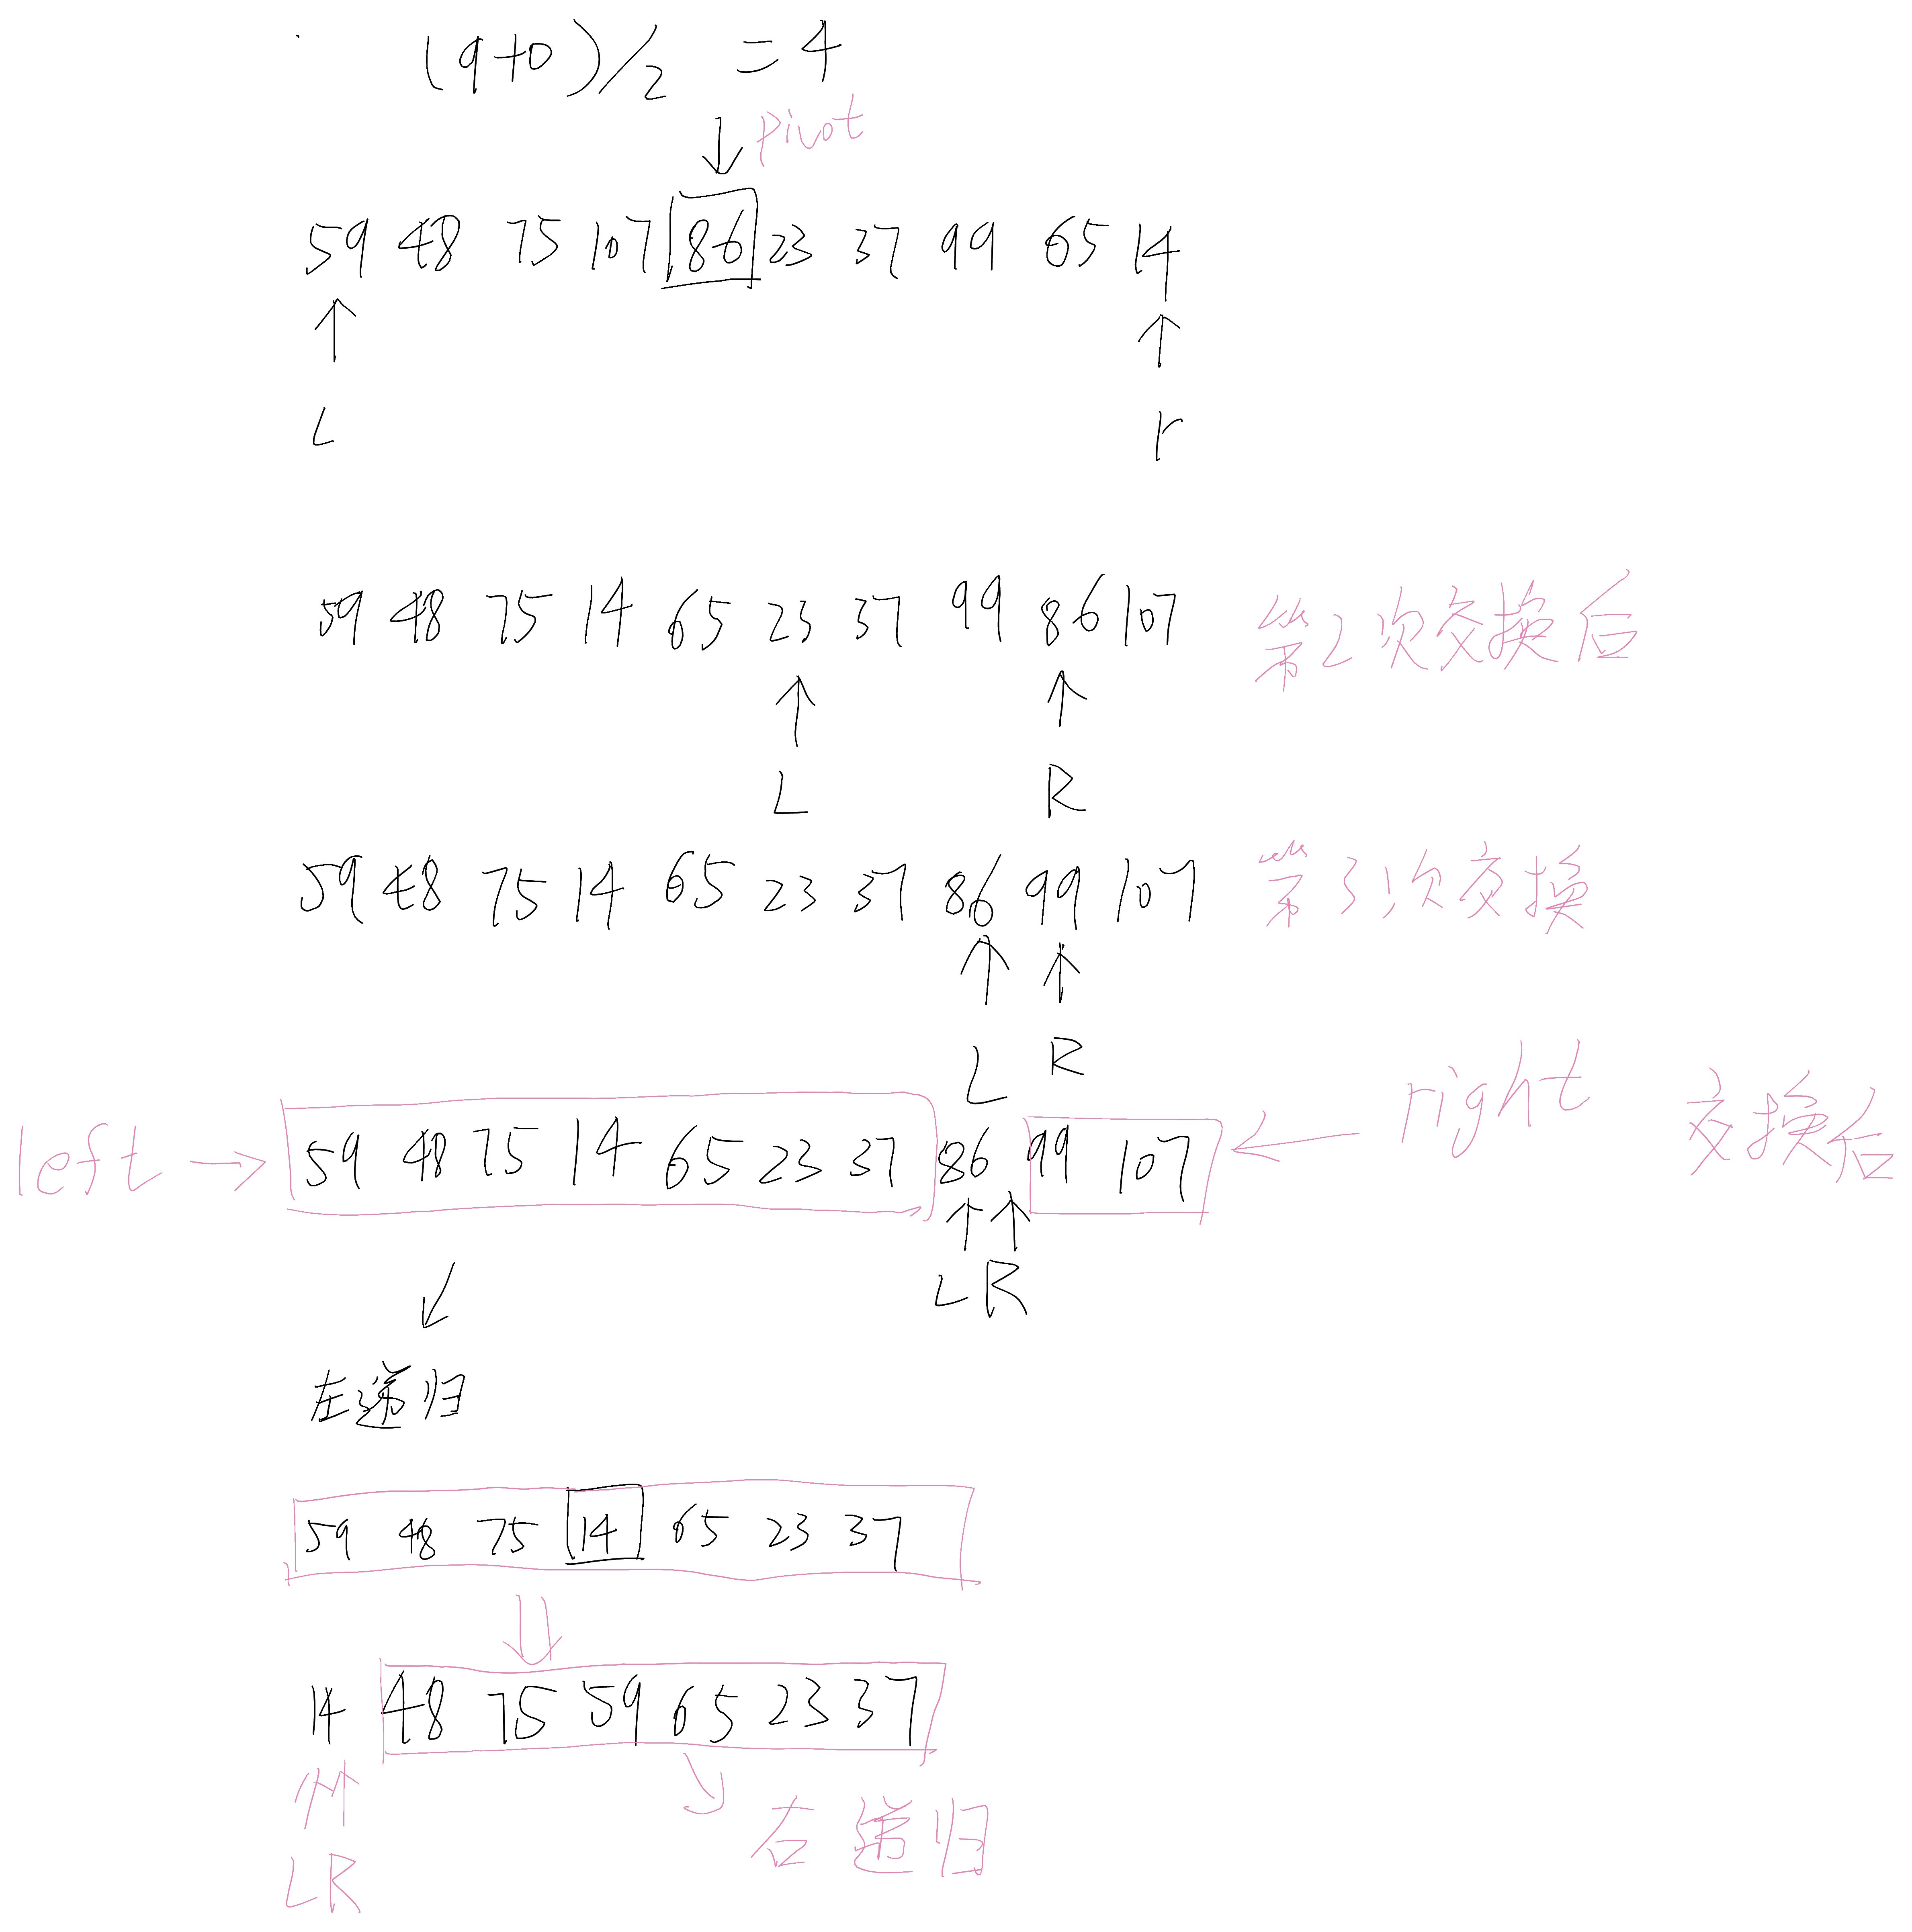 (9+0)/2 =4
pivot
59 48 75 107 86 23 37 99 65 14
L r
59 48 75 14 65 23 37 99 86 107 第2次交换后
L R
59 48 75 14 65 23 37 86 99 107 第3次交换
L R
left 59 48 75 14 65 23 37 86 99 107 right 交换后
L R
左递归
59 48 75 14 65 23 37
14 48 75 59 65 23 37
LR 右递归